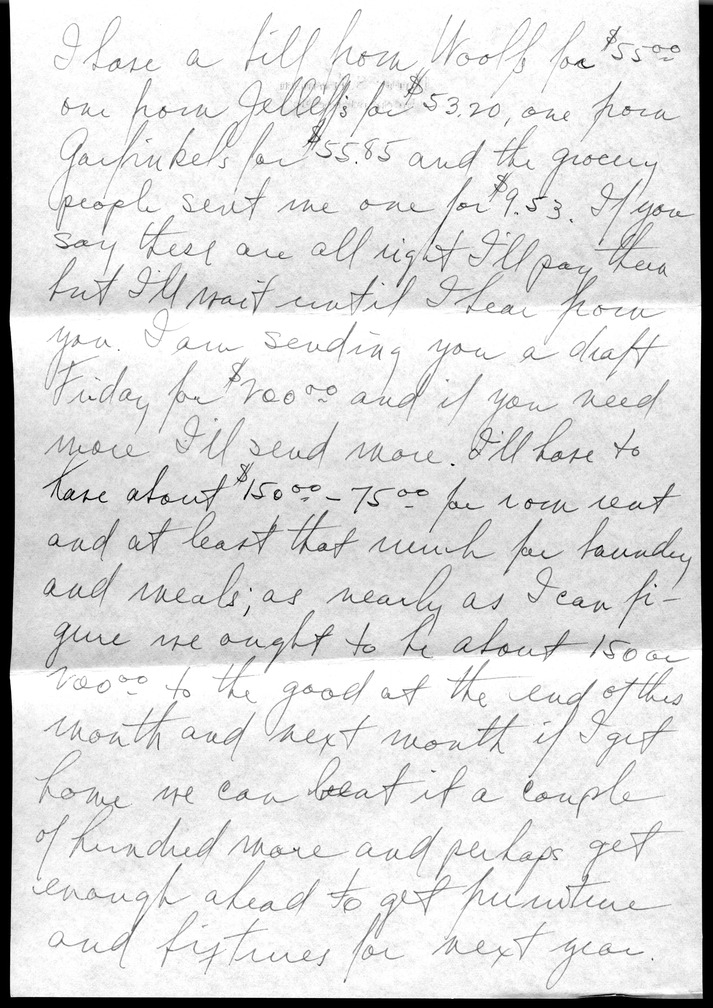 I have a bill from Woolf's for $55.00
one from Jelleff's for $53.20, one from
Garfinkel's for $55.85 and the grocery
people sent me one for $9.53. If you
say these are all right I'll pay them
but I'll wait until I hear from
you. I am sending you a draft
Friday for $200.00 and if you need
more I'll send more. I'll have to
have about $150.00 - 75.00 for room rent
and at least that much for laundry
and meals; as nearly as I can fi-
gure we ought to be about 150 or
200.00 to the good at the end of this
month and next month if I get
home we can beat it a couple
of hundred more and perhaps get
enough ahead to get furniture
and fixtures for next year.